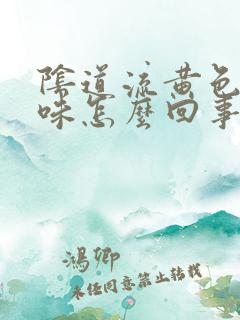 陰道流黃色
味怎麼回事
鴻鄉
未經同意禁止轉載